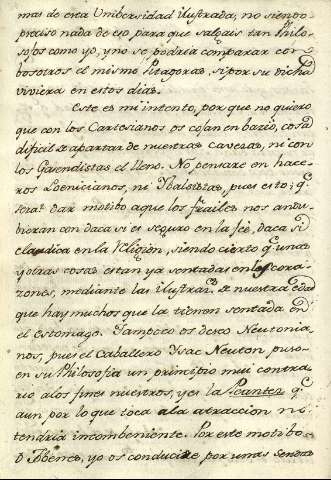 mas de esta Unibersidad ilustrada, no siendo
preciso nada de eso para que salgais tan Philo-
sofos como yo, y no se podria comparar con
bosotros el mismo Pitagoras, si por su dicha
viviera en estos dias.
Este es mi intento, por que no quiero
que con los Cartesianos os cojan en bacio, cosa
dificil de apartar de nuestras cavezas, ni con
los Gasendistas el lleno. No pensare en hace-
ros ni pues esto q.e
sera dar motibo a que los frailes nos andu-
bieran con daca si es seguro en la feè, daca si
claudica en la Religion, siendo cierto q.e unas
y otras cosas estan ya sentadas en los cora-
zones, mediante las de nuestra edad
que hay muchos que la tienen sentada en
el estomago. Tampoco os deseo Neutonia-
nos, pues el Caballero Ysac Neuton puso
en su Philosofia un principio mui contra-
rio alos fines nuestros, y es la q.e
aun por lo que toca ala atraccion no
tendria incombeniente. Por este motibo
o Jobenes, yo os conducire por unas sendas